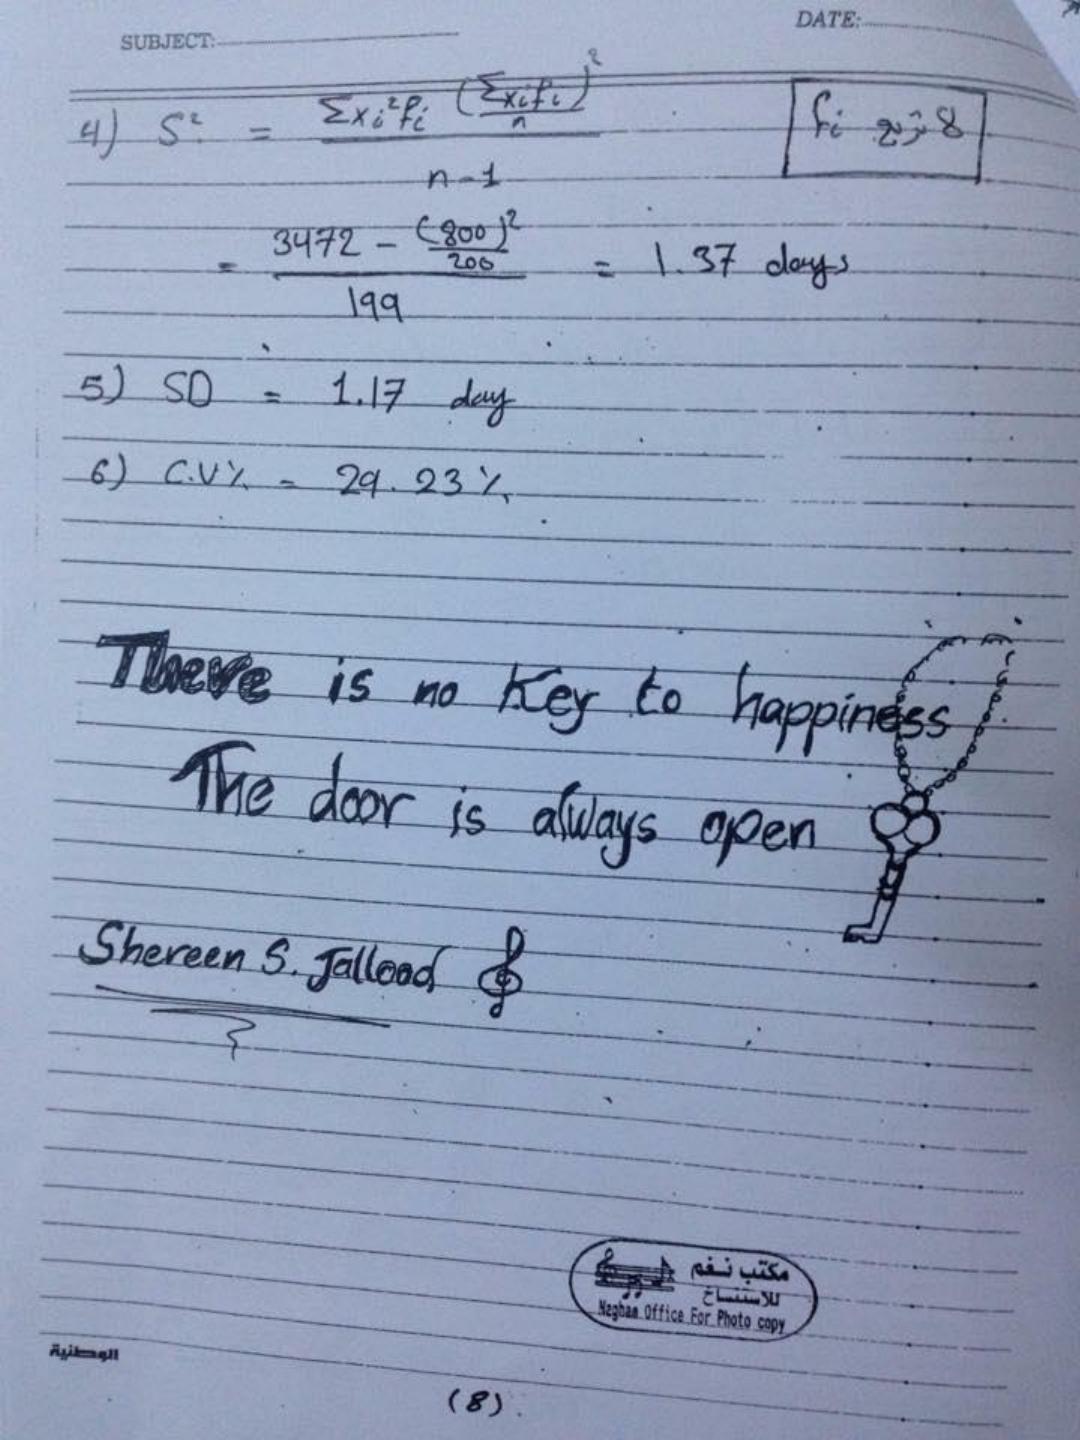 SUBJECT:
DATE:
4) S² = Σxi²fi (Σxifi)² / n
n-1
fi توزيع 8
= 3472 - (800)² / 200 = 1.37 days
199
5) SD = 1.17 day
6) C.V% = 29.23%
There is no Key to happiness
The door is always open
Shereen S. Jallood
مكتب نغم
للاستنساخ
Nagham Office For Photo copy
الوطنية
(8)